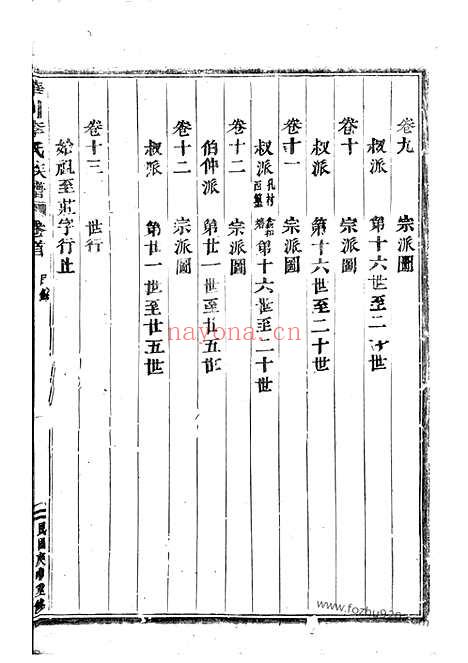 卷九 宗派圖
叔派 第十六世至二十世
卷十 宗派圖
叔派 第十六世至二十世
卷十一 宗派圖
叔派 孔村 第十六世至二十世
卷十二 宗派圖
伯仲派 第廿一世至廿五世
卷十二 宗派圖
叔派 第廿一世至廿五世
卷十三 世行
始祖至莊字行止
李氏族譜 卷首 目錄
民國庚 重修
nayona.cn
www.fozhu920